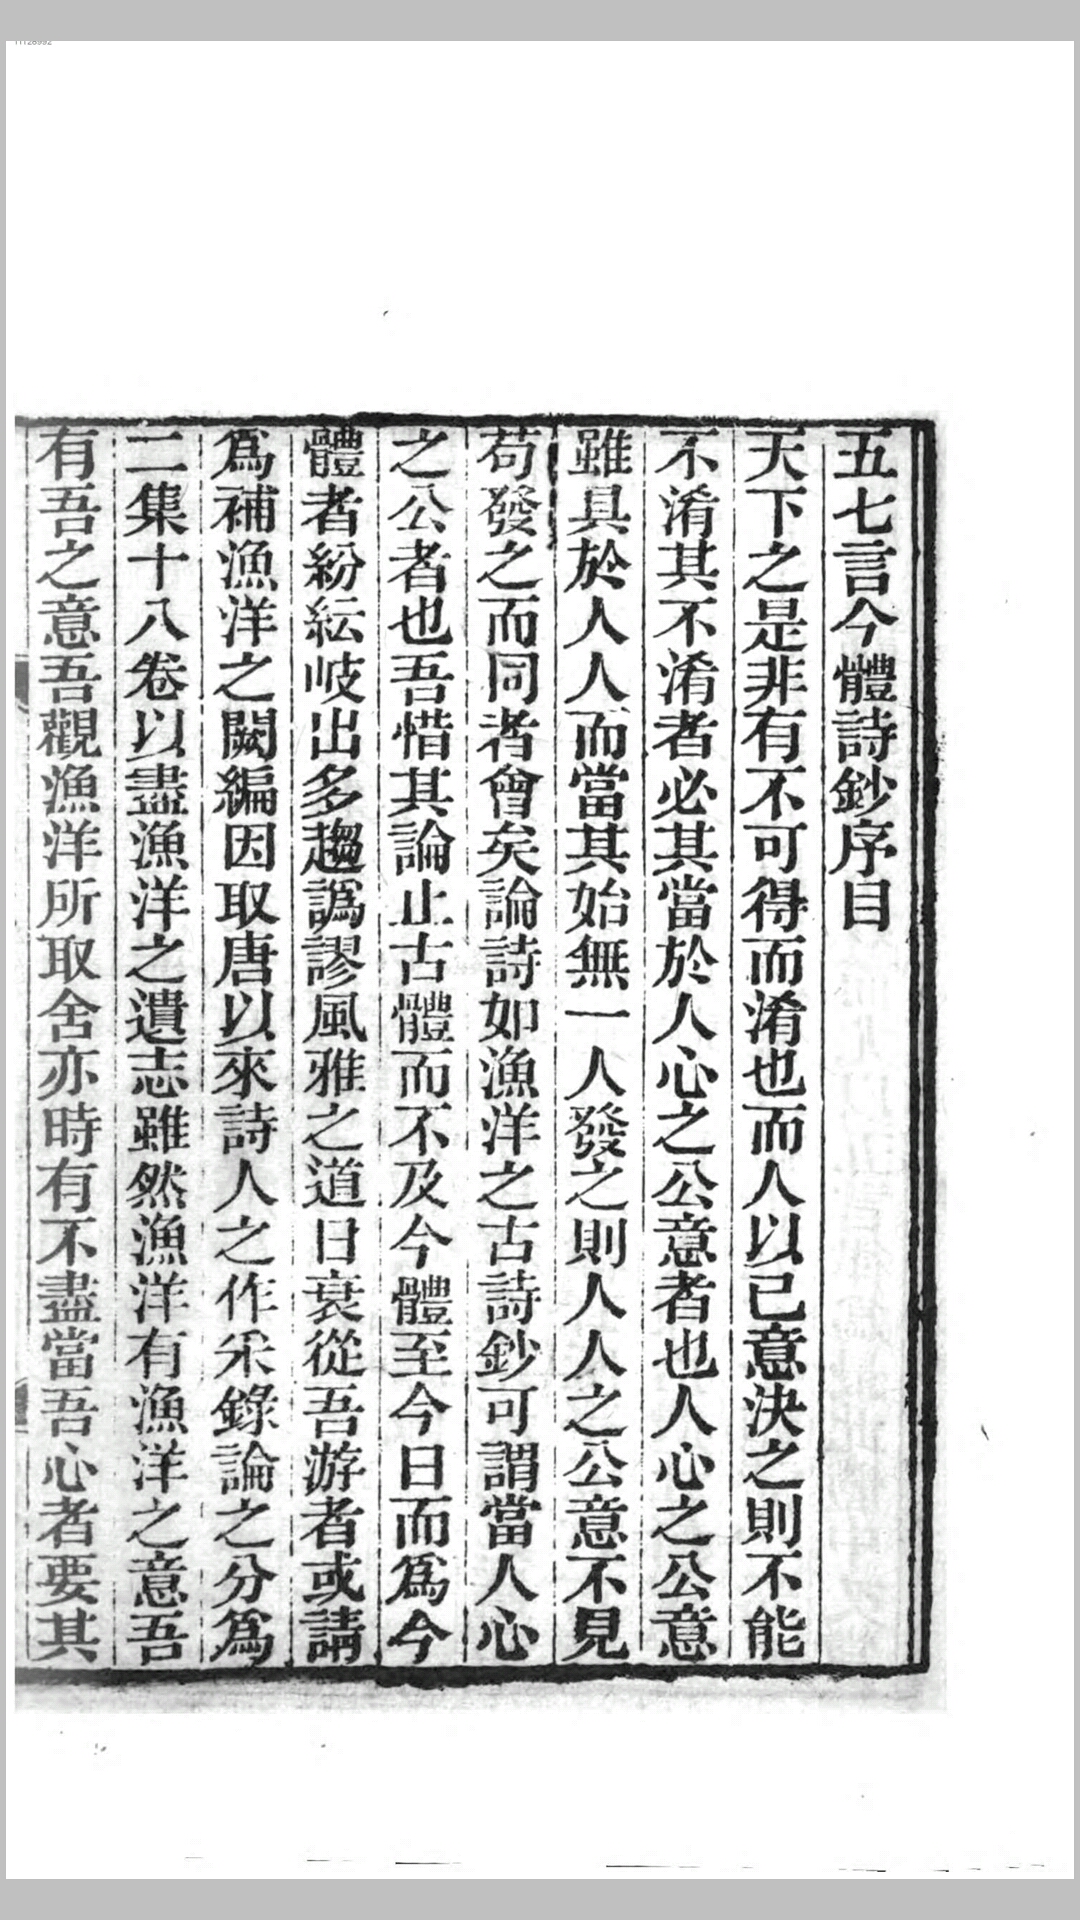 五七言今體詩鈔序目
天下之是非有不可得而淆也而人以己意決之則不能
不淆其不淆者必其當於人心之公意者也人心之公意
雖具於人人而當其始無一人發之則人人之公意不見
苟發之而同者會矣論詩如漁洋之古詩鈔可謂當人心
之公者也吾惜其論止古體而不及今體至今日而爲今
體者紛紜岐出多趨譌謬風雅之道日衰從吾游者或請
爲補漁洋之闕編因取唐以來詩人之作采錄論之分爲
二集十八卷以盡漁洋之遺志雖然漁洋有漁洋之意吾
有吾之意吾觀漁洋所取舍亦時有不盡當吾心者要其